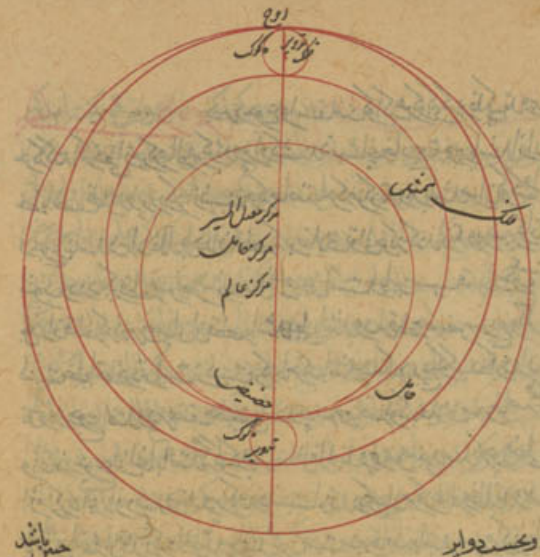 اوج
فلک تدویر کوکب
فلک ممثل
مرکز معدل المسیر
مرکز حامل
مرکز عالم
حضیض
حامل
تدویر کوکب
و بحسب دوایر چنین باشد